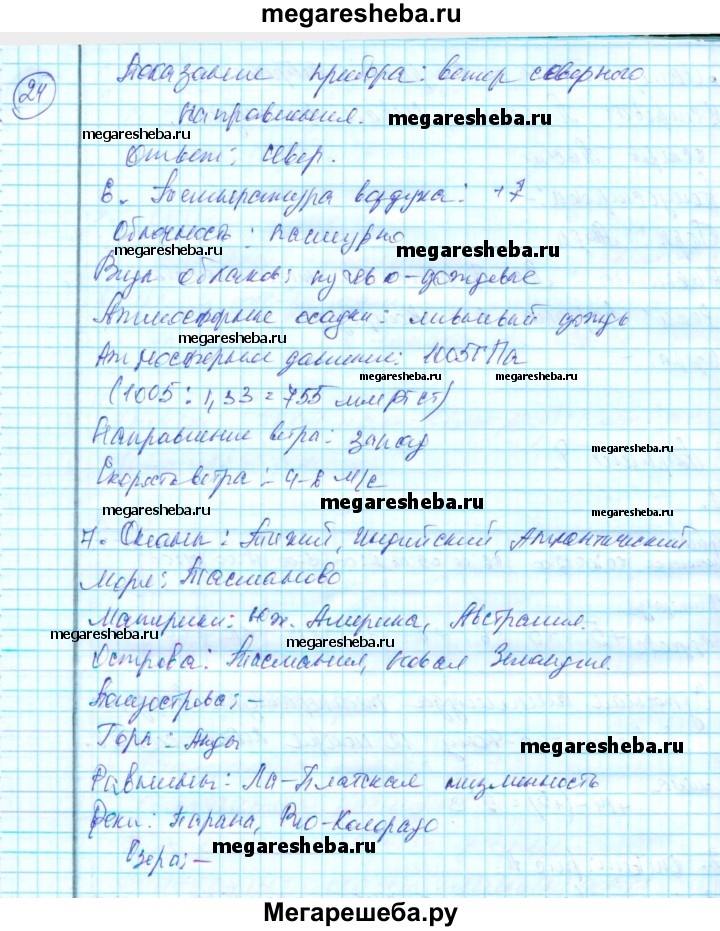 megaresheba.ru
24
Показание прибора: ветер северного
направления. megaresheba.ru
megaresheba.ru
Ответ: север.
6. Температура воздуха: +7
Облачность: пасмурно
megaresheba.ru megaresheba.ru
Вид облаков: кучево-дождевые
Атмосферные осадки: ливневый дождь
megaresheba.ru
Атмосферное давление: 1005 гПа
megaresheba.ru megaresheba.ru
(1005 : 1,33 = 755 мм рт ст)
Направление ветра: запад
megaresheba.ru
Скорость ветра: 4-8 м/с
megaresheba.ru
megaresheba.ru megaresheba.ru
7. Океаны: Тихий, Индийский, Атлантический
Моря: Тасманово
Материки: Юж. Америка, Австралия.
megaresheba.ru megaresheba.ru
Острова: Тасмания, Новая Зеландия.
Полуострова: –
Горы: Анды
megaresheba.ru
Равнины: Ла-Платская низменность
Реки: Парана, Рио-Колорадо
Озера: – megaresheba.ru
Мегарешеба.ру